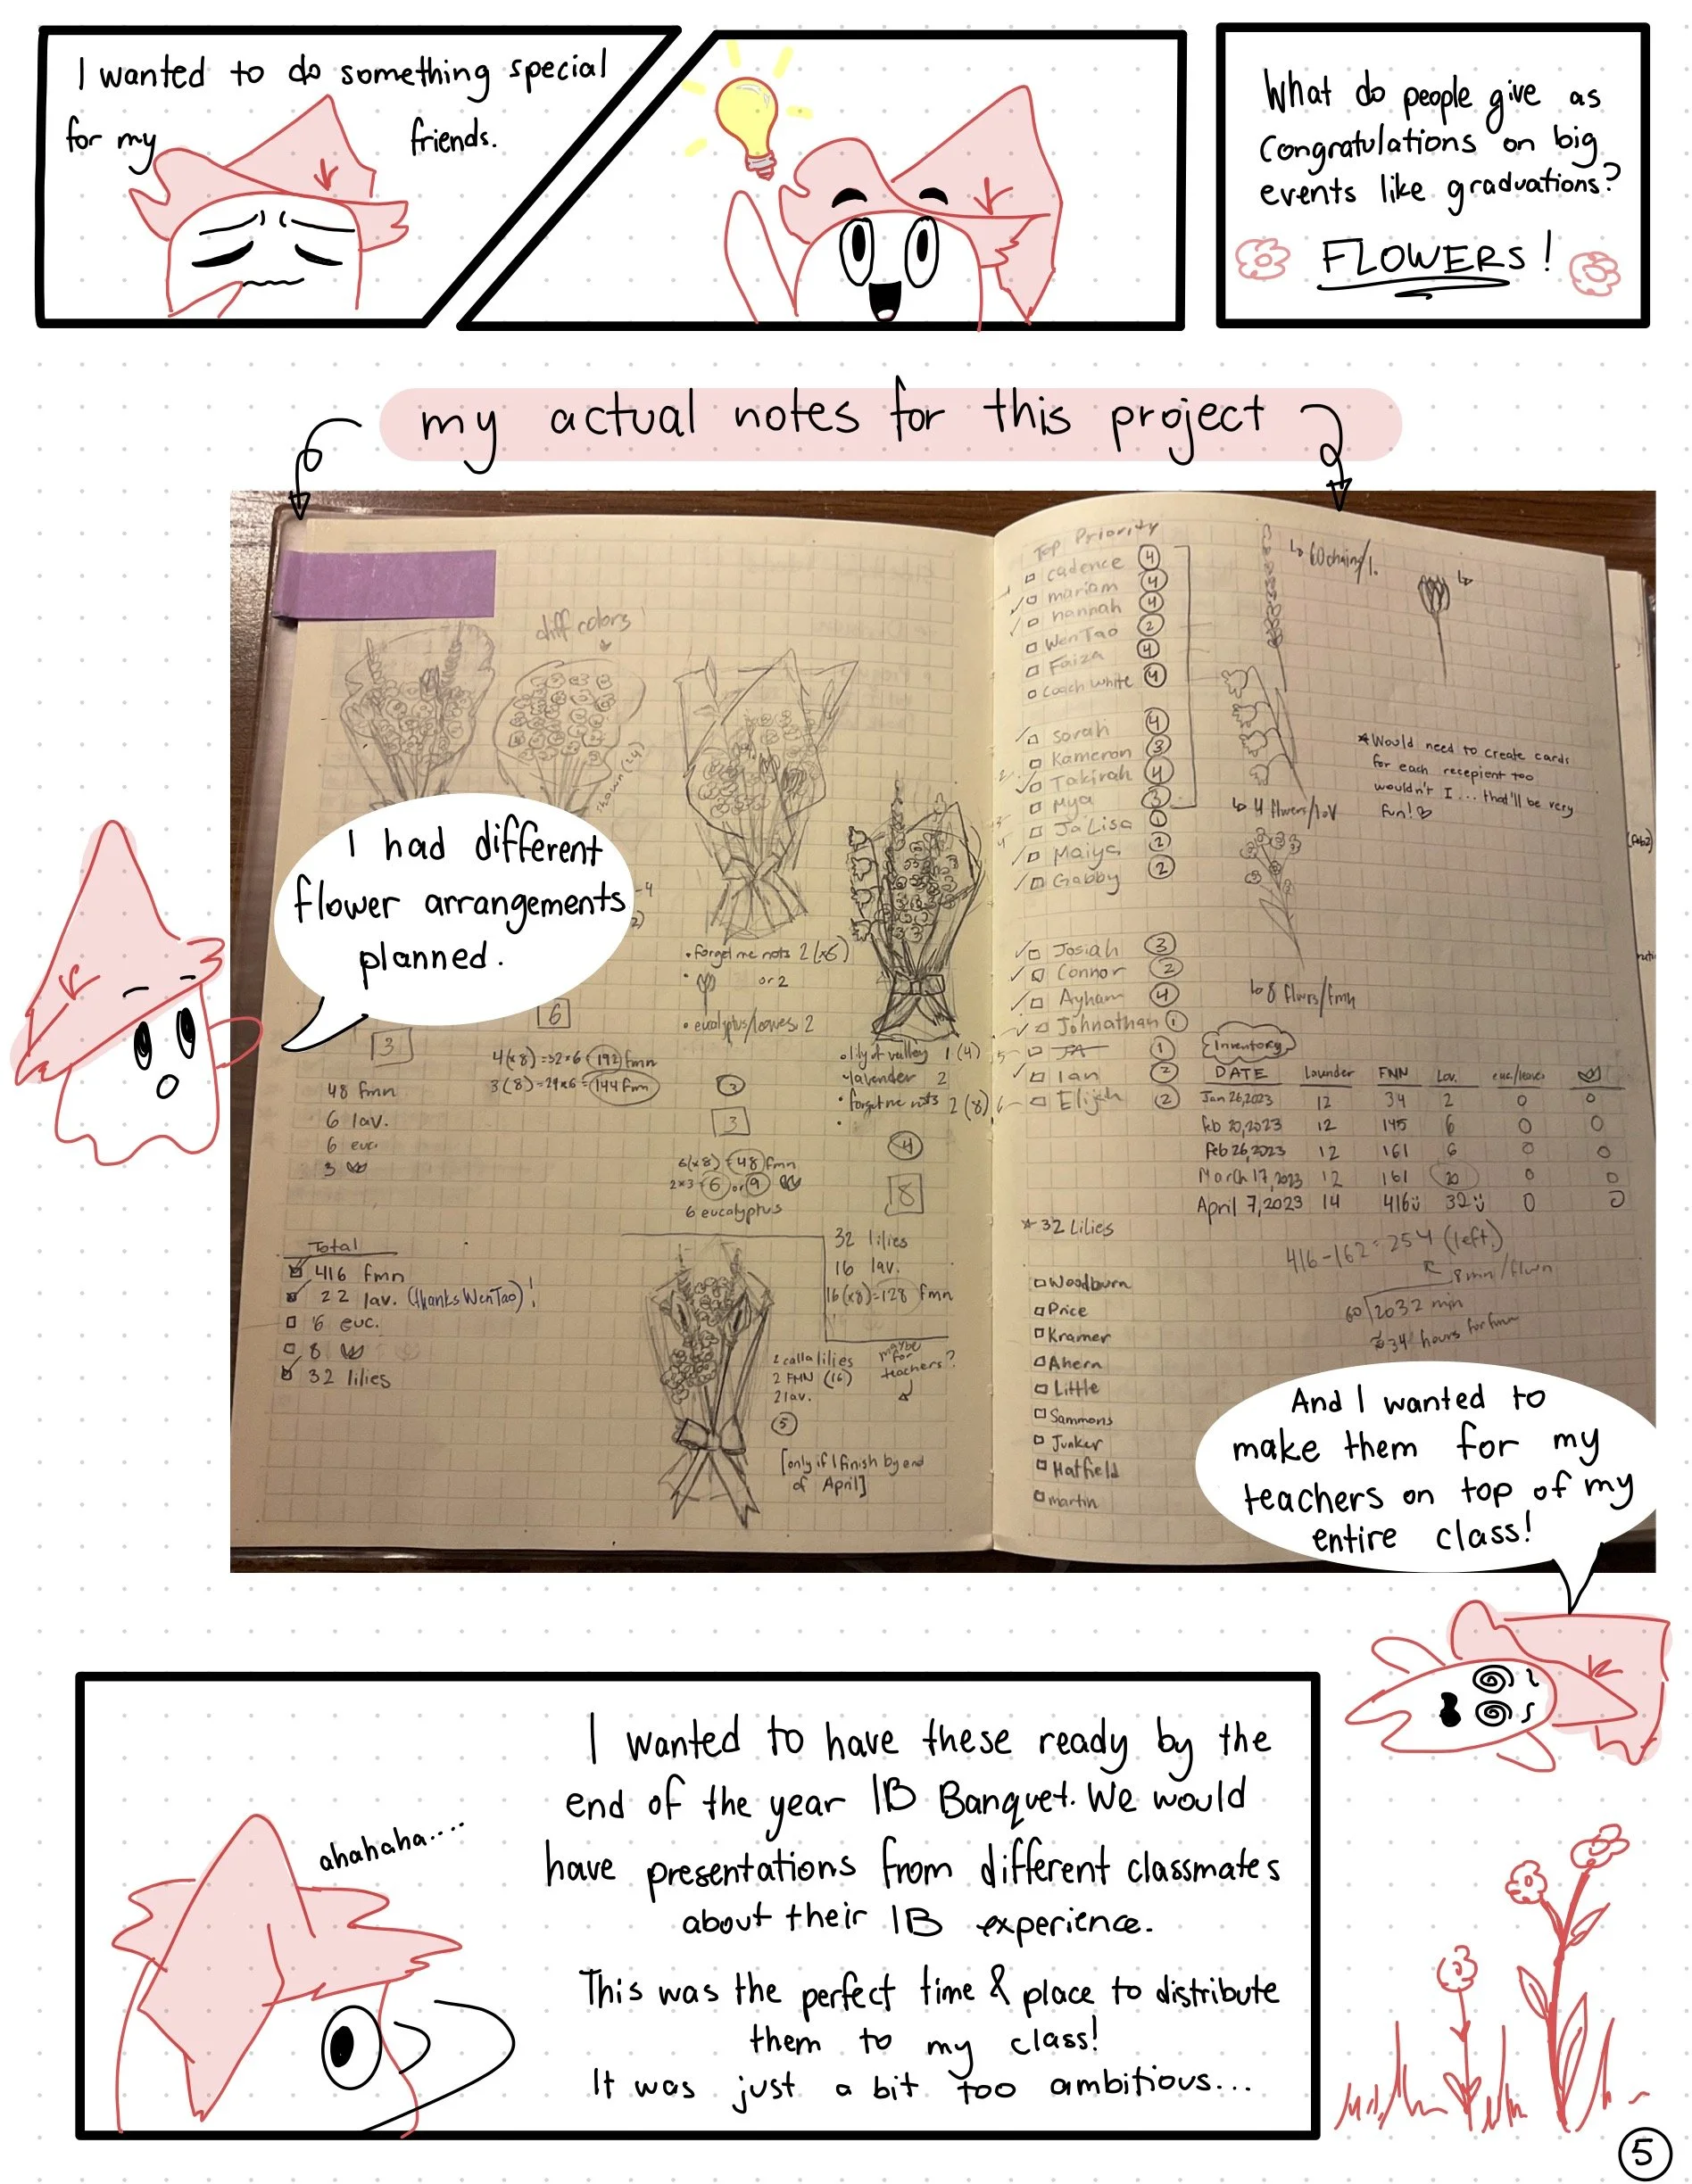 I wanted to do something special
for my friends.
What do people give as
congratulations on big
events like graduations?
FLOWERS!
my actual notes for this project
diff colors
shown (24)
I had different
flower arrangements
planned.
• forget me nots 2 (x6)
• or 2
• eucalyptus/leaves: 2
3
48 fmn
6 lav.
6 euc.
3
6
4(x8) = 32x6 = 192 fmn
3(8) = 24x6 = 144 fmn
3
3
6(x8) = 48 fmn
2x3 = 6 or 9
6 eucalyptus
• lily of valley 1 (4)
• lavender 2
• forget me nots 2 (8)
4
8
32 lilies
16 lav.
16(x8)=128 fmn
Total
416 fmn
22 lav. (thanks WenTao)!
6 euc.
8
32 lilies
2 calla lilies
2 FMN (16)
2 lav.
5
maybe
for
teachers?
[only if I finish by end
of April]
Top Priority
cadence 4
mariam 4
hannah 4
WenTao 2
Faiza 4
coach white 4
sarah 4
Kameron 3
Takirah 4
Mya 3
Ja'Lisa 1
Maiya 2
Gabby 2
Josiah 3
Connor 2
Ayham 4
Johnathan 1
JA 1
Ian 2
Elijah 2
↳ 60 chains/l.
↳
*Would need to create cards
for each recepient too
wouldn't I... that'll be very
fun! ♡
↳ 4 flwers/lov
↳ 8 flwrs/fmn
Inventory
DATE Lavunder FNN Lov. euc/leaves
Jan 26,2023 12 34 2 0 0
Feb 20,2023 12 145 6 0 0
Feb 26,2023 12 161 6 0 0
March 17,2023 12 161 20 0 0
April 7,2023 14 416 32 0 0
* 32 Lilies
416-162=254 (left)
8mn/flwn
60 2032 min
≈34 hours for fmn
Woodburn
Price
Kramer
Ahern
Little
Sammons
Junker
Hatfield
martin
And I wanted to
make them for my
teachers on top of my
entire class!
ahahaha....
I wanted to have these ready by the
end of the year IB Banquet. We would
have presentations from different classmates
about their IB experience.
This was the perfect time & place to distribute
them to my class!
It was just a bit too ambitious...
5